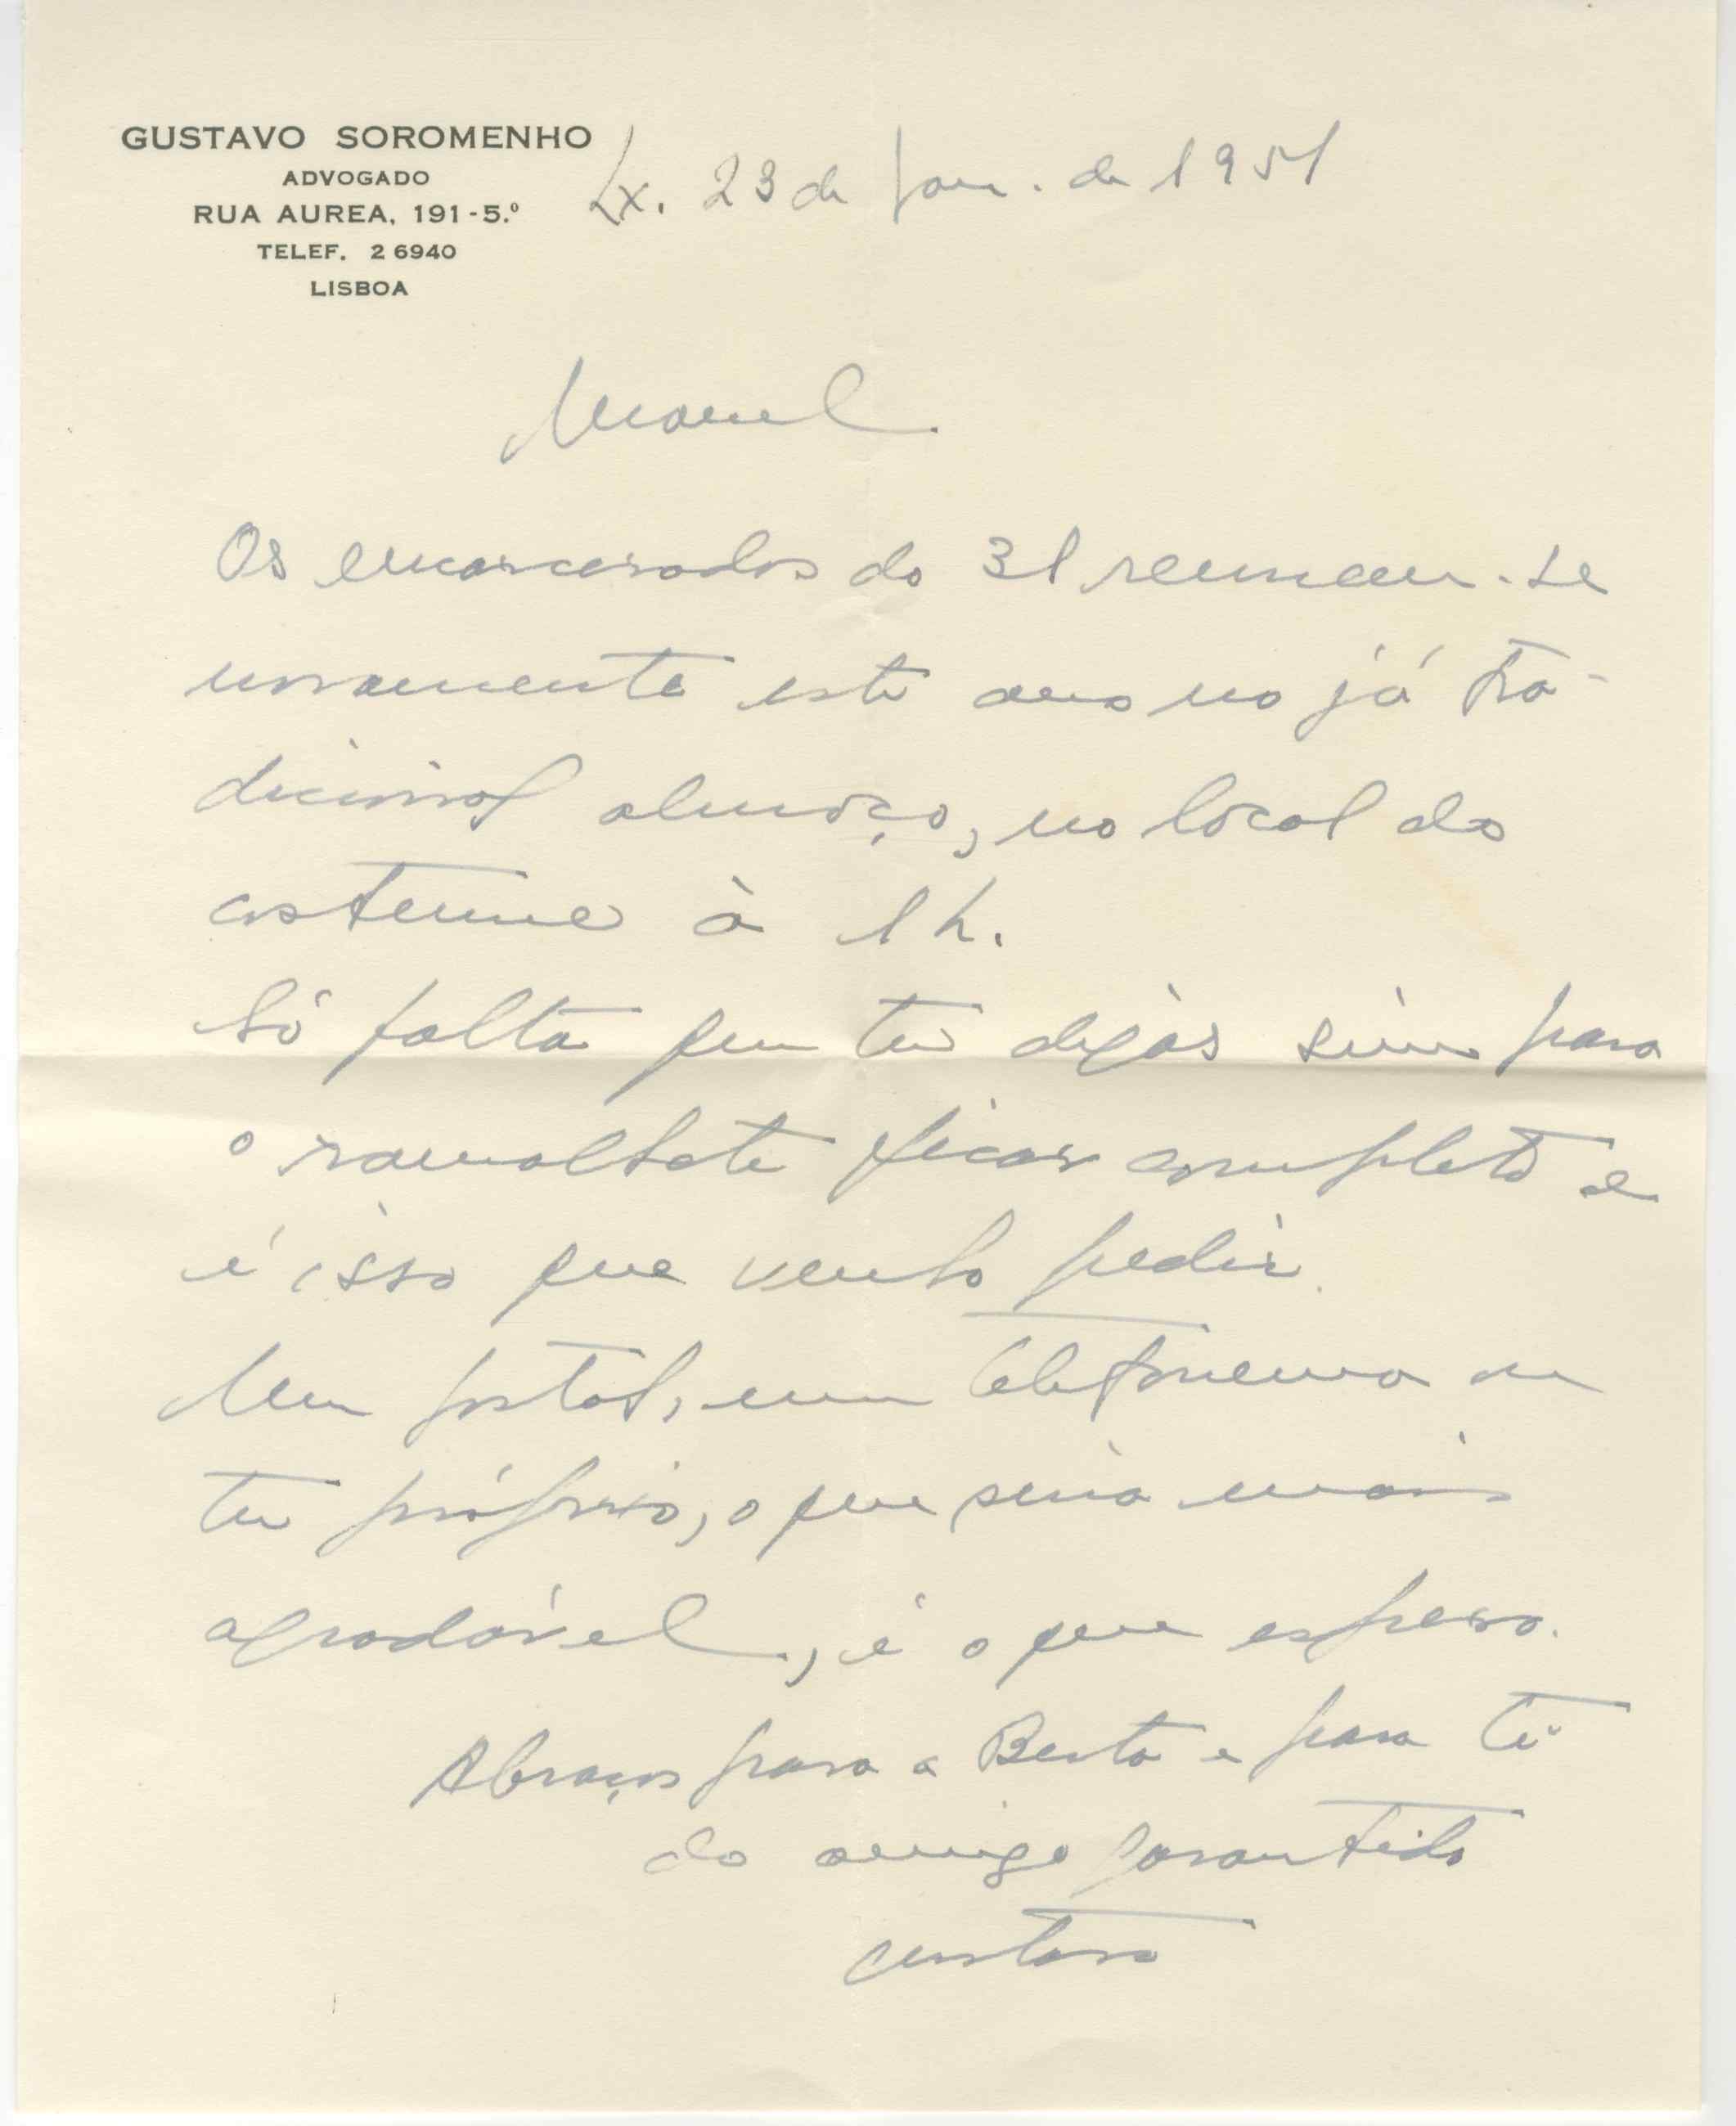 GUSTAVO SOROMENHO
ADVOGADO
RUA AUREA, 191-5.º
TELEF. 2 6940
LISBOA
Lx. 23 de Jan. de 1951
Manel.
Os encarcerados do 31 reunem-se
novamente este ano no já tra-
dicional almoço, no local do
costume à 1 h.
Só falta que tu digas sim para
o ramalhete ficar completo e
é isso que venho pedir.
Um postal, um telefonema ou
tu próprio, o que seria mais
agradável, é o que espero.
Abraços para a Berta e para ti
do amigo garantido
Gustavo